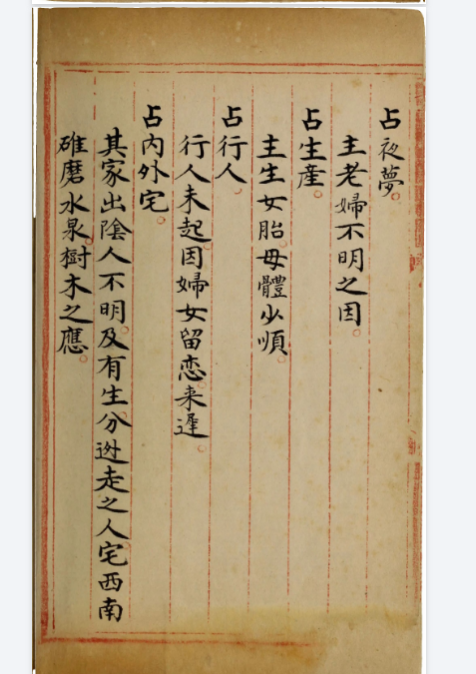 占夜夢。
主老婦不明之因。
占生產。
主生女胎。母體少順。
占行人。
行人未起。因婦女留恋。来遲。
占内外宅。
其家出陰人不明。及有生分逃走之人。宅西南
碓磨水泉樹木之應。